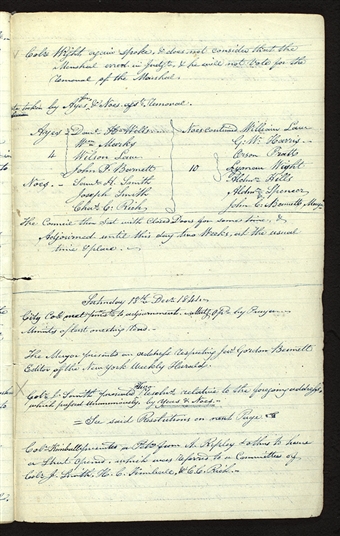 Colr. Wight again spoke, & does not consider that the
Marshal erred in Judgt. & he will not Vote for the
removal of the Marshal.
taken by Ayes & Noes, upn. removal.
Ayes Danl. H. Wells Noes continued William Law
Wm. Marks G. W. Harris
4 Wilson Law Orson Pratt
John P. Bennett 10 Lyman Wight
Noes. Saml. H. Smith Wells
Joseph Smith Spencer
Chas. C. Rich John C. Bennett, Mayr.
The Council then sat with closed Doors for some time, &
Adjourned until this day two Weeks, at the usual
time & place.
Saturday 18th. Decr. 1841.
City Col. met pursnt. to adjournment. by Prayer.
Minuts of last meeting Read.
The Mayor presents an address respecting Jas. Gordon Bennett
Editor of the New York Weekly Herald.
Colr. J. Smith presents three resolns. relative to the foregoing address,
which passed Unanimously. by Ayes & Noes.
= See said Resolutions on next Page =
Colr. Kimball presented a Petn. from A. Ripley & others to have
a Street Opened. which was referred to a Committee of
Colr. J. Smith, H. C. Kimball, & C. C. Rich.